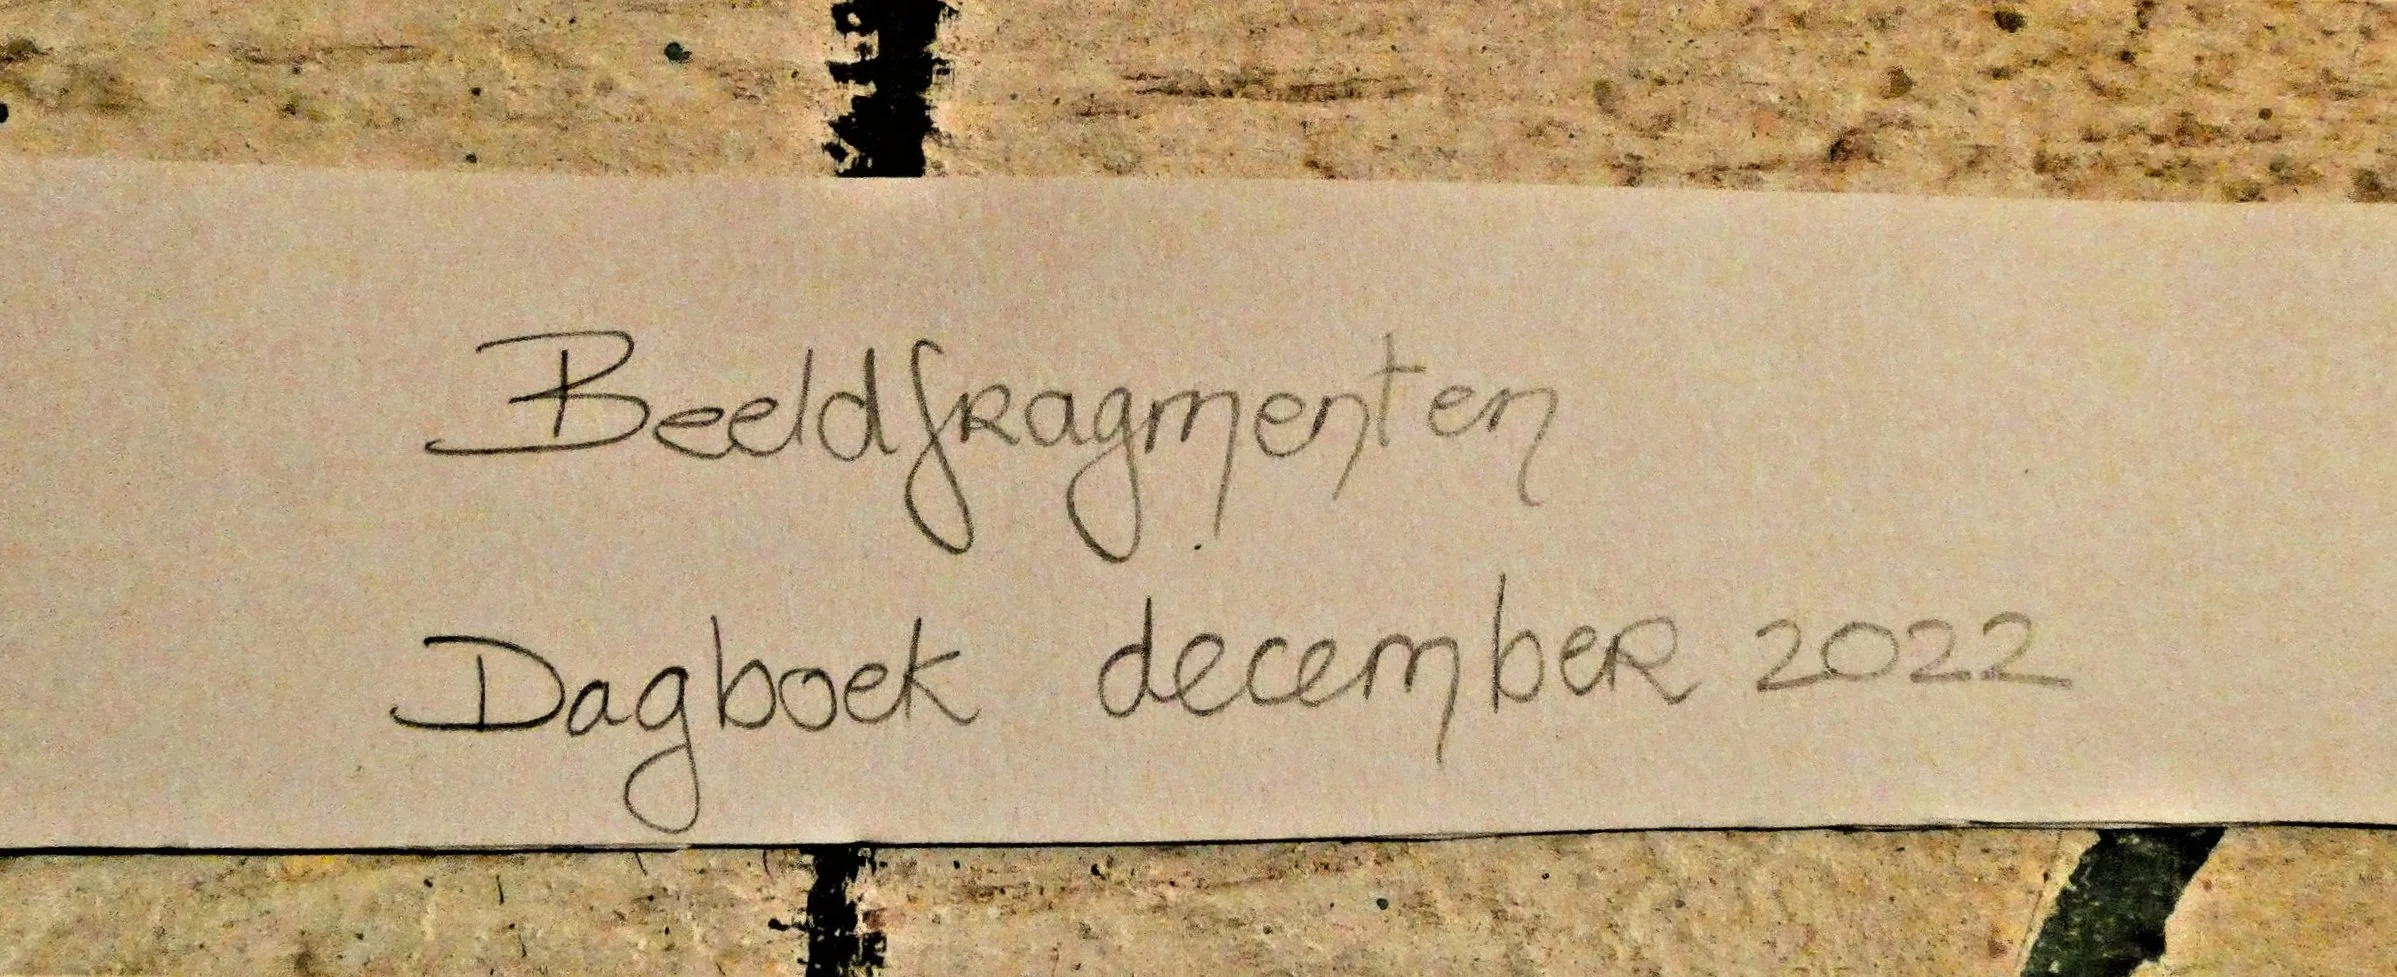 Beeldfragmenten
Dagboek december 2022